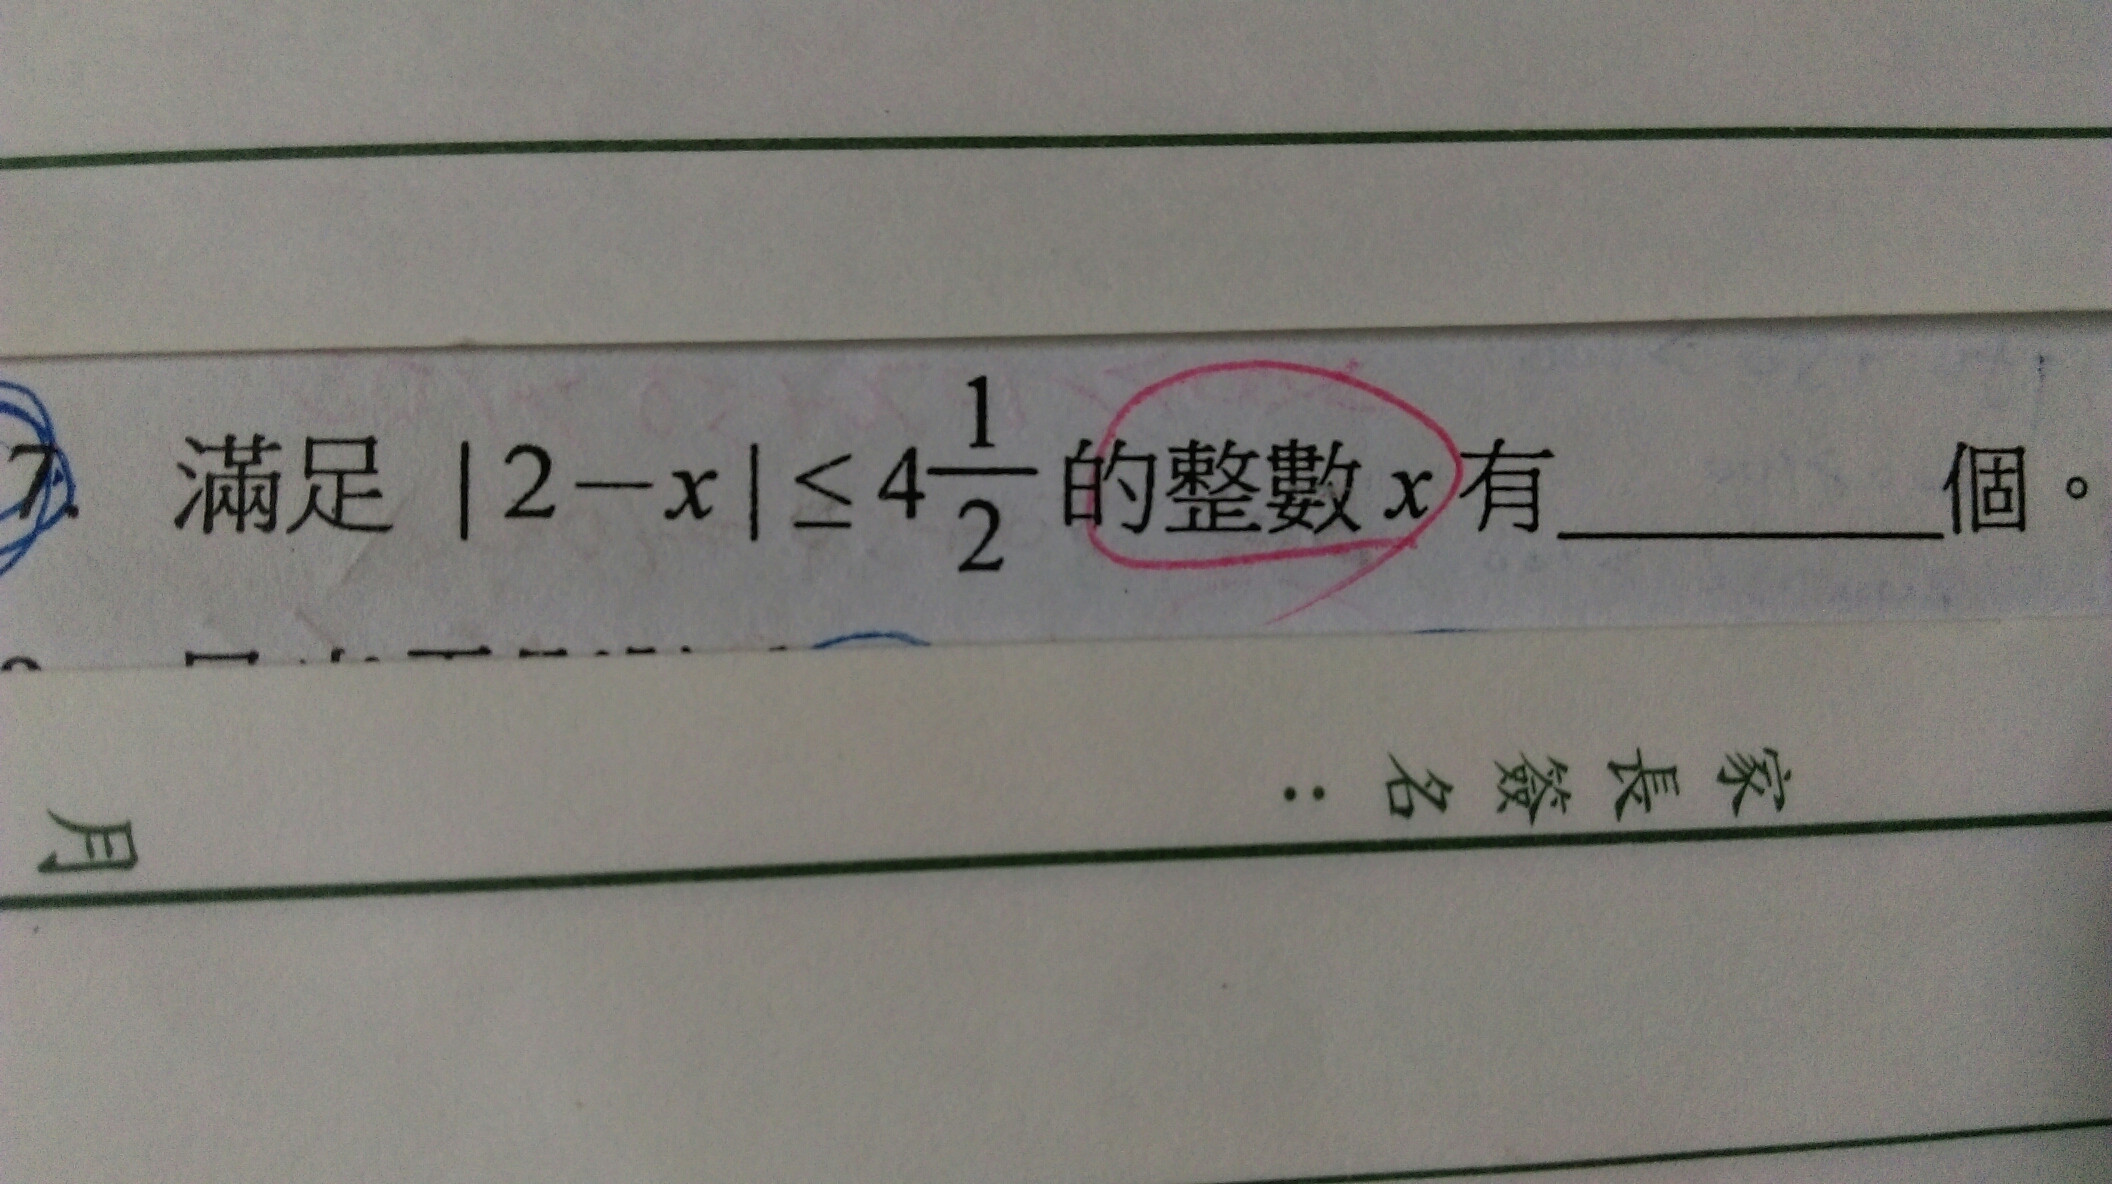 7. 滿足 |2-x|≤4 1/2 的整數 x 有________個。
家長簽名：
月